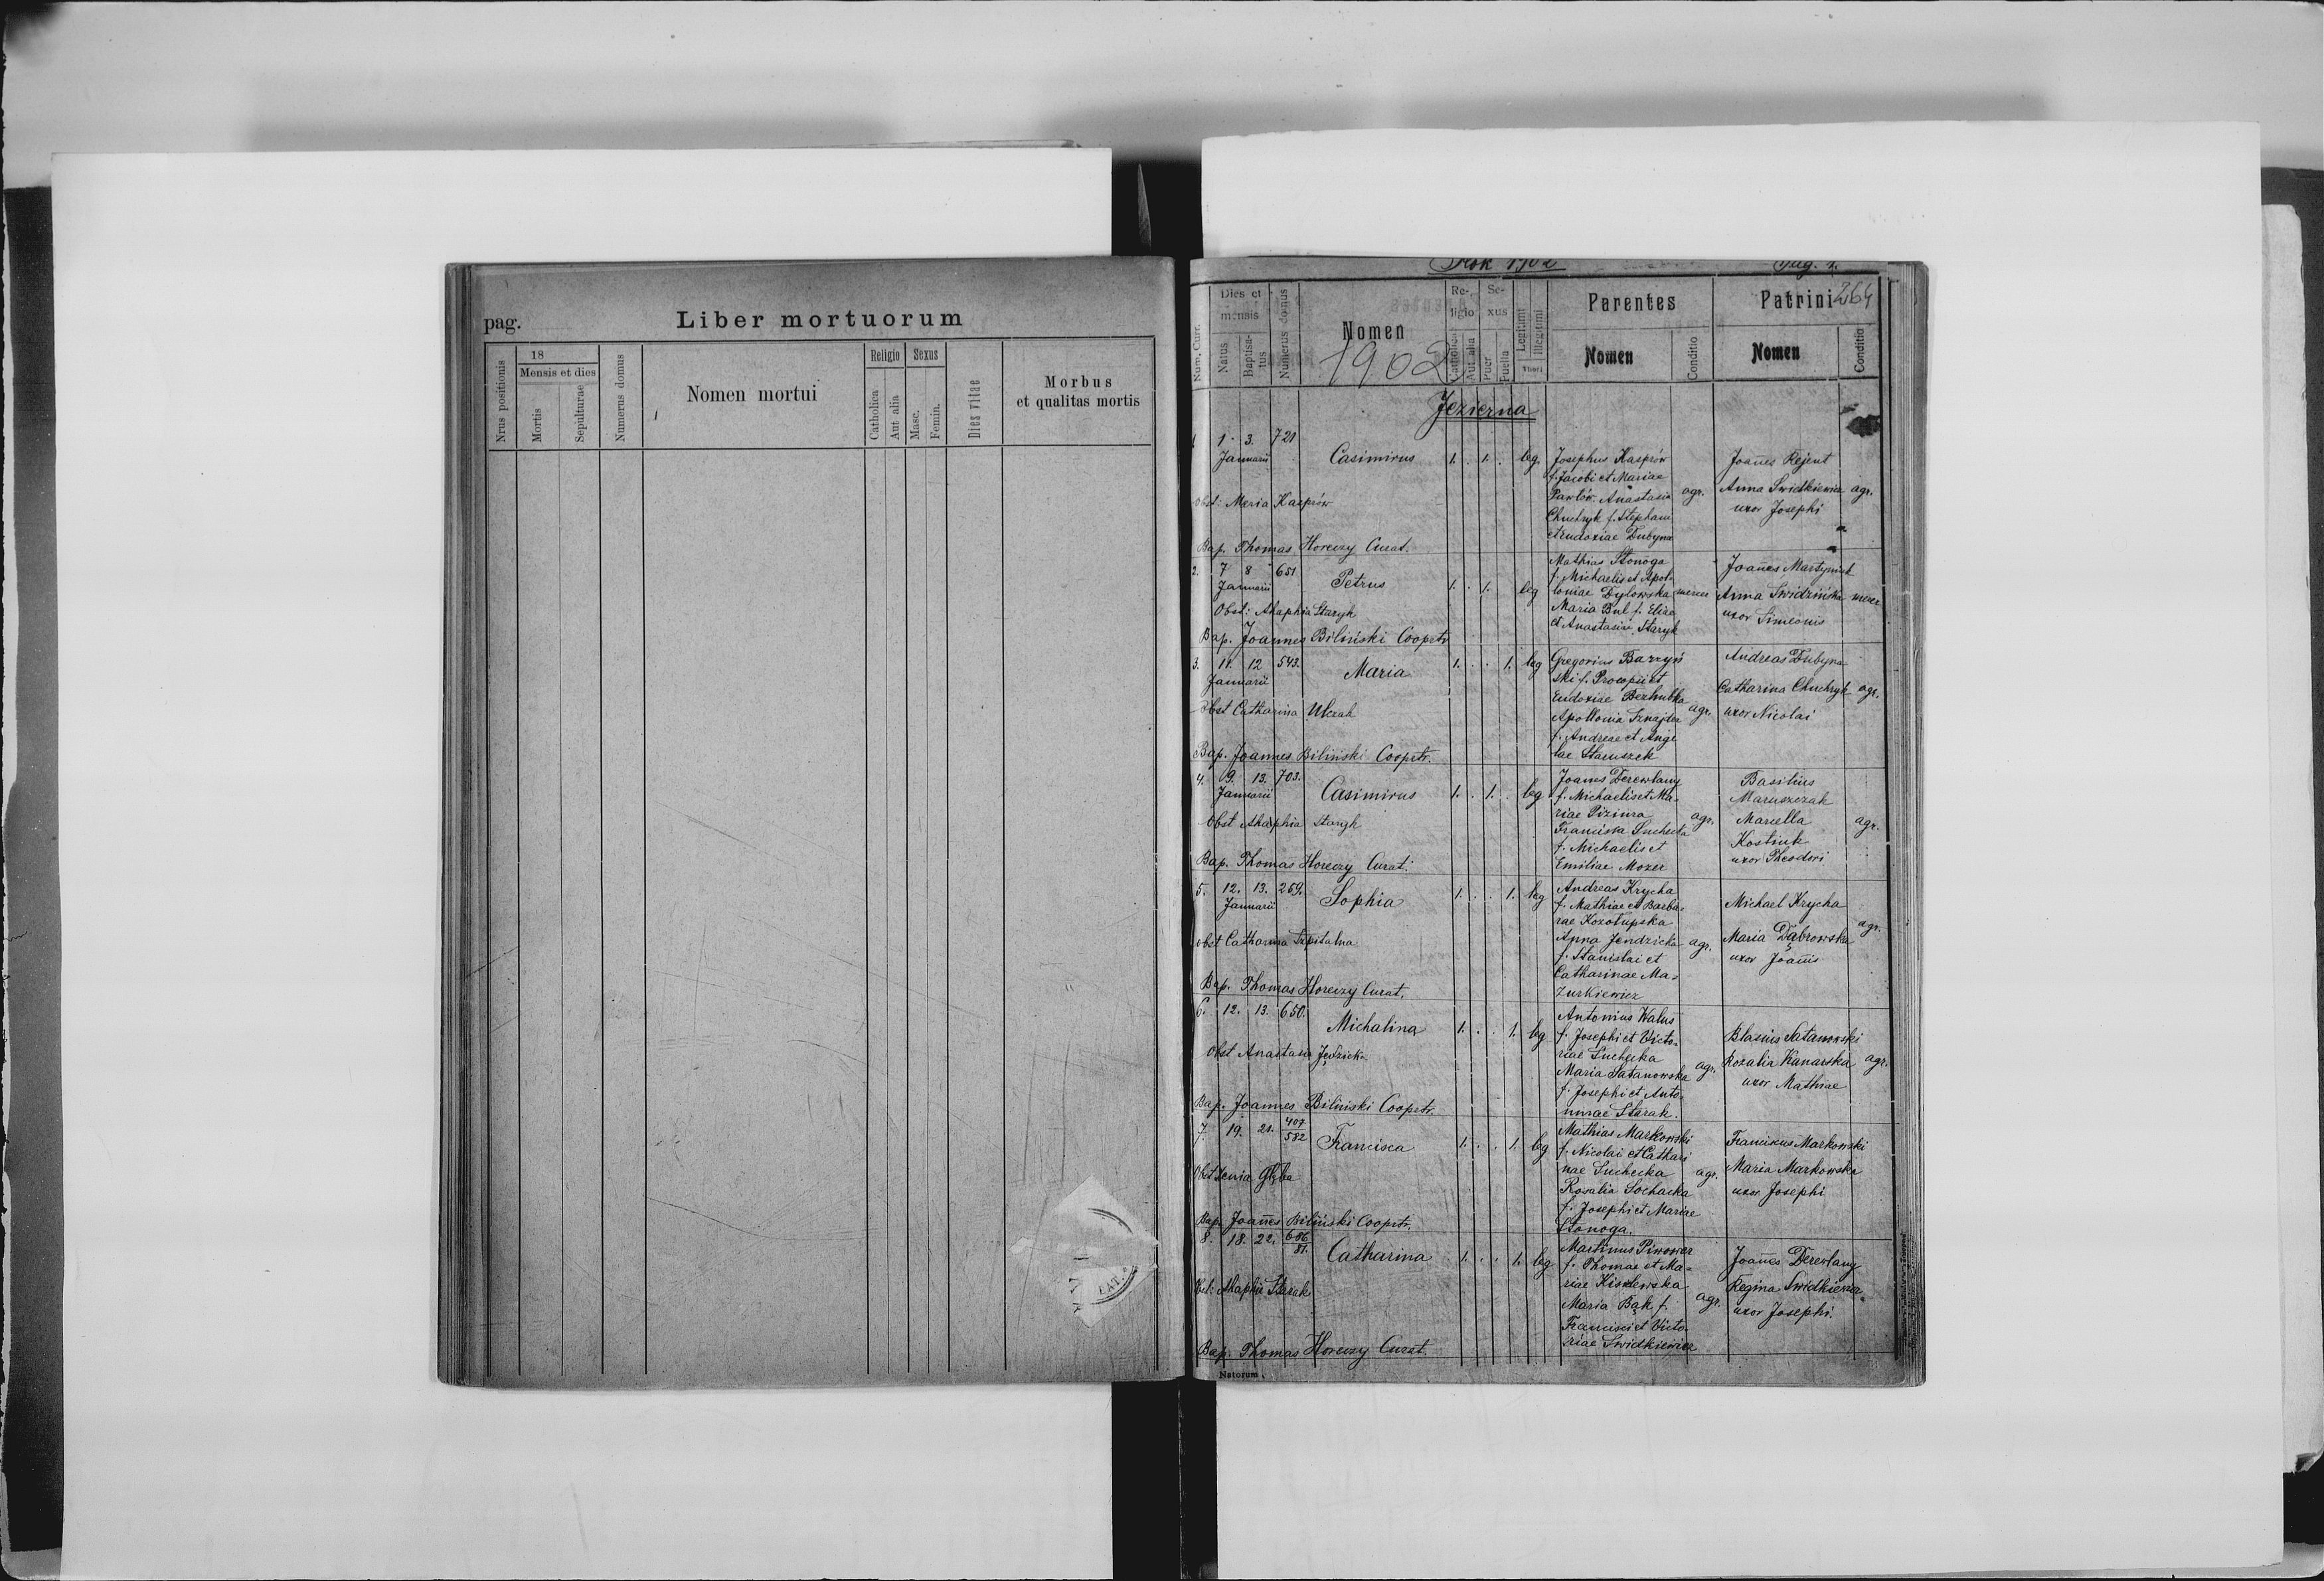 pag. Liber mortuorum
Nrus positionis
18
Mensis et dies
Mortis
Sepulturae
Numerus domus
Nomen mortui
Religio
Catholica
Aut alia
Sexus
Masc.
Femin.
Dies vitae
Morbus
et qualitas mortis
Rok 1902 Pag. 1.
264
Num. Curr.
Dies et
mensis
Natus
Baptisa-
tus
Numerus domus
Nomen
1902
Re-
ligio
Catholica
Aut alia
Se-
xus
Puer
Puella
Legitimi
Illegitimi
Thori
Parentes
Nomen
Conditio
Patrini
Nomen
Conditio
Jezierna
1. 1. 3. 721
Januarii
Casimirus 1. . 1. . leg.
Josephus Kasprów
f. Jacobi et Mariae
Pawlów. Anastasia agr.
Chudryk f. Stephani
et Eudoxiae Dubyna
Joañes Rejent
Anna Swidkiewicz agr.
uxor Josephi
Obst: Maria Kasprów
Bap. Thomas Horeczy Curat.
2. 7 8 651
Januarii
Petrus 1. . 1. leg
Mathias Stonoga
f. Michaelis et Apol-
loniae Dylowska mercen
Maria Bul f. Eliae
et Anastasiae Staryk
Joañes Martyniuk
Anna Swidzińska mercen
uxor Simeonis
Obst: Ahaphia Staryk
Bap. Joannes Biliński Cooprtr
3. 11. 12 543.
Januarii
Maria 1. . . 1. leg
Gregorius Barryń
ski f. Procopii et
Eudoxiae Bezhubka
Apollonia Sznajder agr.
f. Andreae et Ange
lae Staruszek
Andreas Dubyna
Catharina Chuchryk agr.
uxor Nicolai
Obst Catharina Ulczak
Bap. Joannes Biliński Cooprtr.
4. 9. 13. 703.
Januarii
Casimirus 1. . 1. . leg
Joañes Derewlany
f. Michaelis et Ma-
riae Piziura agr.
Franciska Suchecka
f. Michaelis et
Emiliae Mozer
Basilius
Maruszczak
Marcella agr.
Kostiuk
uxor Theodori
Obst Ahaphia Staryk
Bap. Thomas Horeczy Curat.
5. 12. 13. 259.
Januarii
Sophia 1. . . 1. leg
Andreas Krycha
f. Mathiae et Barba-
rae Kozołupska
Anna Jendzicka agr.
f. Stanislai et
Catharinae Ma-
zurkiewicz
Michael Krycha
Maria Dąbrowska agr.
uxor Joañis
obst Catharina Szpitalna
Bap. Thomas Horeczy Curat.
6. 12. 13. 650.
Michalina 1. . . 1. leg
Antonius Kalus
f. Josephi et Victo-
riae Suchecka
Maria Satanowska agr.
f. Josephi et Anto-
ninae Starak.
Blasius Satanowski
Rozalia Kanarska agr.
uxor Mathiae
Obst Anastasia Jędzicka
Bap. Joannes Biliński Cooprtr.
7. 19. 21. 407
582
Francisca 1. . . 1. leg
Mathias Markowski
f. Nicolai et Cathari
nae Suchecka agr.
Rosalia Sochacka
f. Josephi et Mariae
Stonoga.
Franciscus Markowski
Maria Markowska
uxor Josephi
Obst Xenia
Bap. Joañes Biliński Cooprtr.
8. 18. 22. 686
81.
Catharina 1. . . 1. leg
Martinus Piwowar
f. Thomae et Ma-
riae Kiselewska
Maria Bąk f. agr.
Francisci et Victo-
riae Swidkiewicz
Joañes Derewlany
Regina Swidkiewicz
uxor Josephi.
Obst: Ahaphia Starak
Bap. Thomas Horeczy Curat.
Natorum.